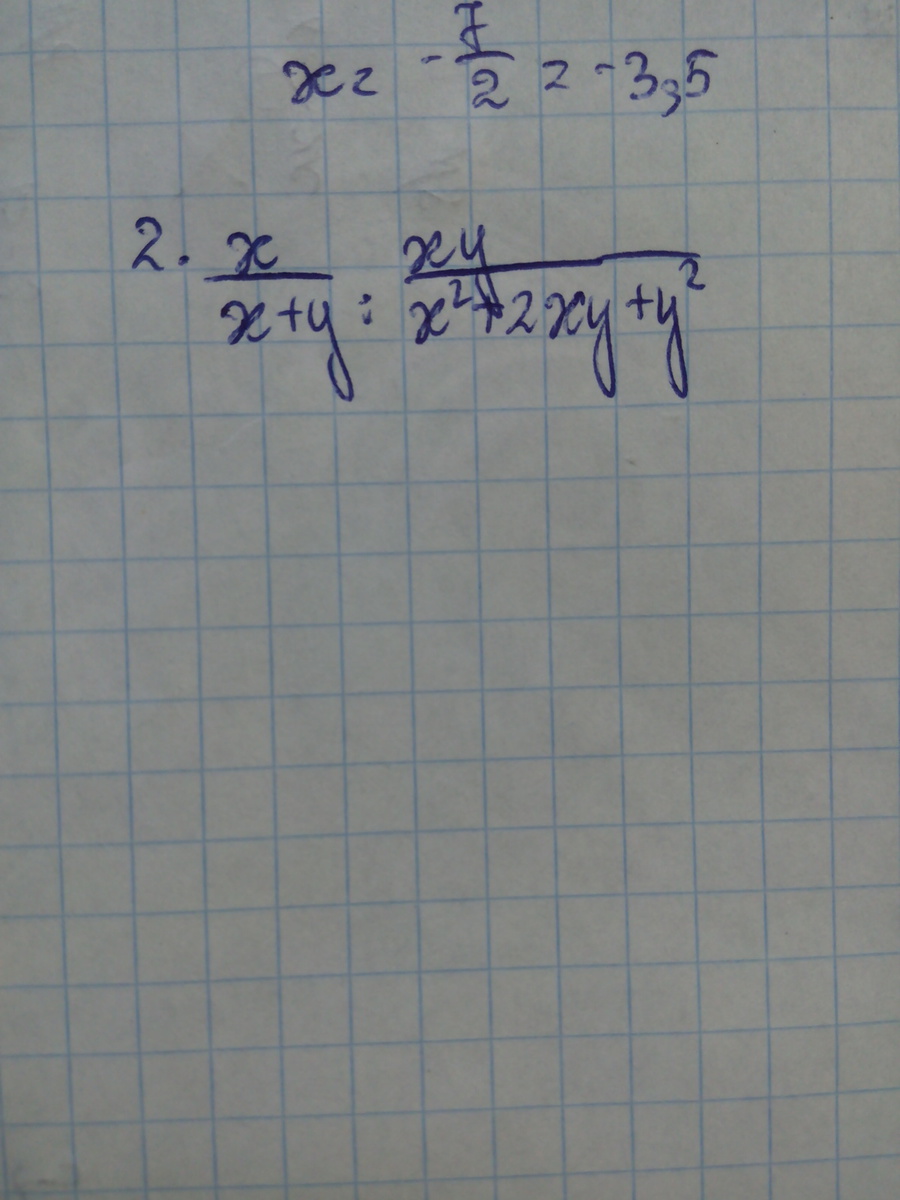 x = -7/2 = -3,5
2. x/(x+y) : xy/(x²+2xy+y²)